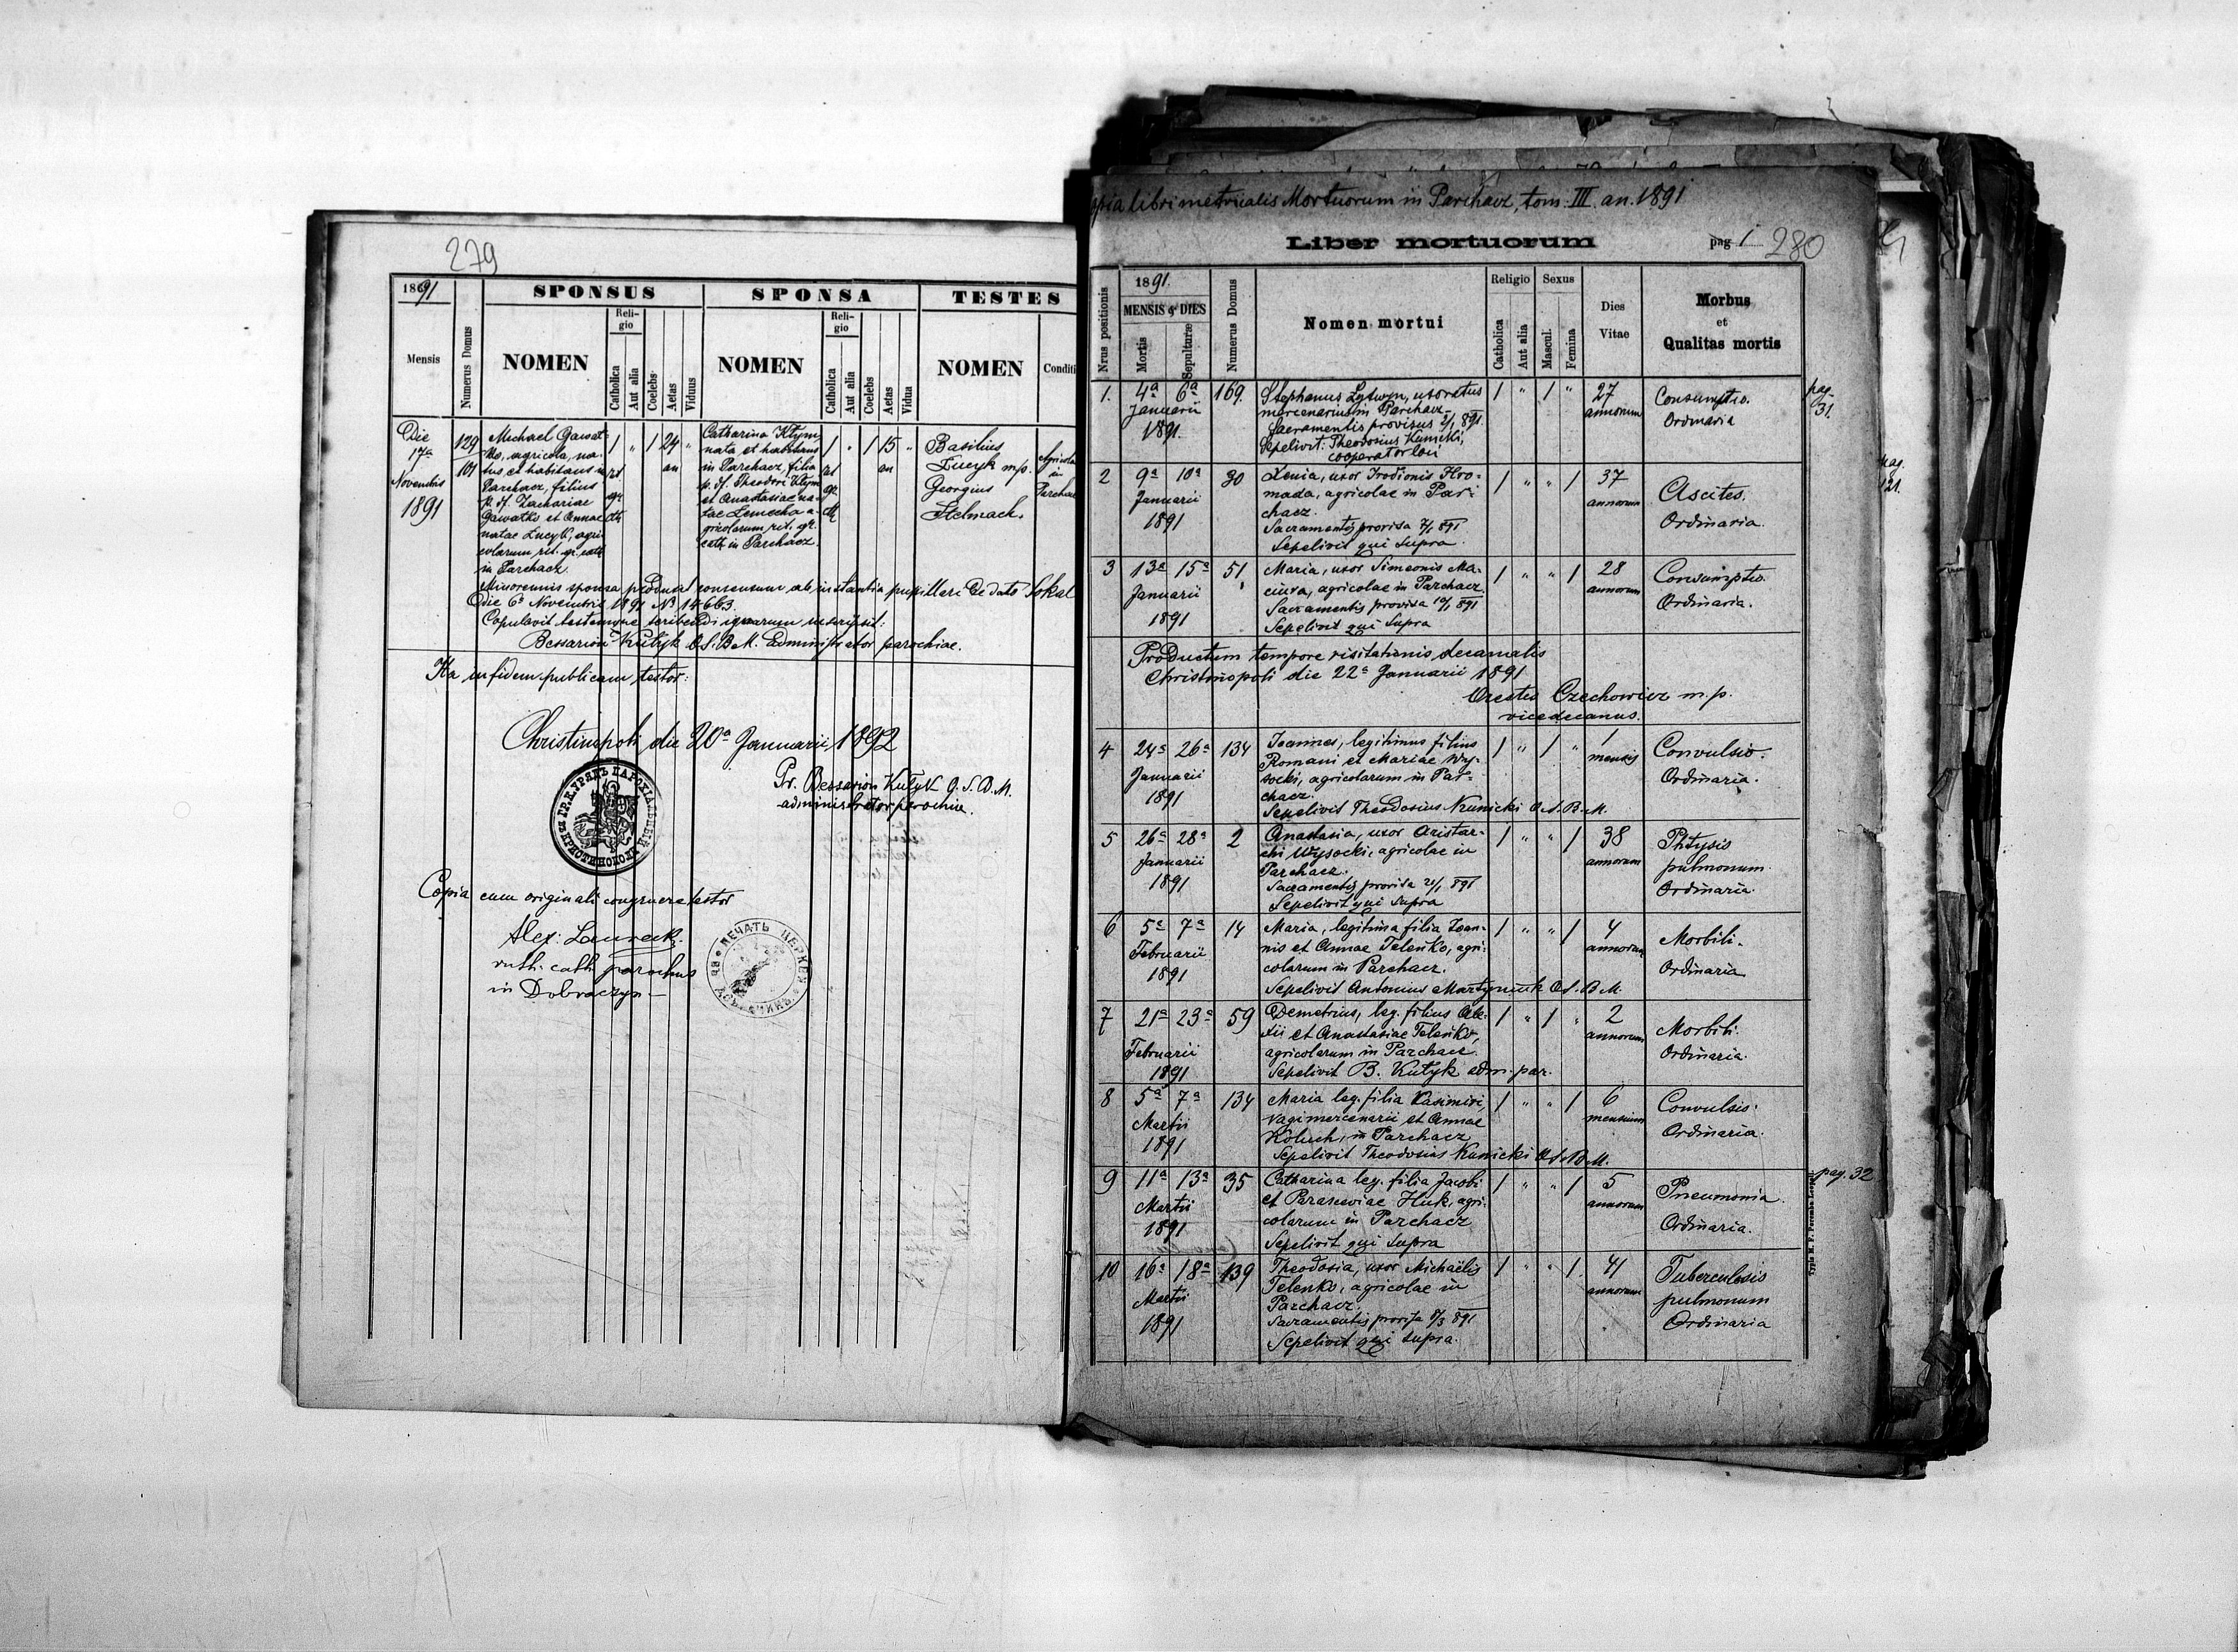 279
1891
Mensis
Numerus Domus
SPONSUS
NOMEN
Religio
Catholica
Aut alia
Coelebs
Aetas
Viduus
SPONSA
NOMEN
Religio
Catholica
Aut alia
Coelebs
Aetas
Vidua
TESTES
NOMEN
Conditi
Die
17a
Novembris
1891
129
101
Michael Gawat-
ko, agricola, na-
tus et habitans in
Parchacz, filius
p. d. Zachariae
Gawatko et Annae
natae Lucyk, agri-
colarum rit. gr. cath
in Parchacz
1 " 1 24 "
rt an
gr
cth
Catharina Klym,
nata et habitans
in Parchacz, filia
p. d. Theodori Klym
et Anastasiae na-
tae Lemecha a-
gricolarum rit. gr.
cath in Parchacz.
1 " 1 15 "
rt an
gr
cth
Basilius
Lucyk m/p.
Georgius
Stelmach.
Agricola
in
Parchacz
Minorennis sponsa produxit consensum ab instantia pupillari de dato Sokal
die 6a Novembris 1891 No 14663.
Copulavit testemque scribendi ignarum inscripsit:
Bessarion Kutyk O.S.B.M. Administrator parochiae.
Ita in fidem publicam testor:
Christinopoli die 20a Januarii 1892
Pr. Bessarion Kutyk O.S.B.M.
administrator parochiae.
Copia cum originali congruere testor
Alex: Laureck
ruth. cath. parochus
in Dobraczyn
ПЕЧАТЬ ЦЕРКВИ
opia libri metricalis Mortuorum in Parchacz, tom: III. an. 1891
Liber mortuorum
pag 1
280
Nrus positionis
1891.
MENSIS et DIES
Mortis
Sepulturæ
Numerus Domus
Nomen mortui
Religio
Catholica
Aut alia
Sexus
Mascul.
Femina
Dies
Vitae
Morbus
et
Qualitas mortis
1. 4a 6a
Januarii
1891.
169.
Stephanus Lytwyn, uxoratus
mercenarius in Parchacz
Sacramentis provisus 3/1 891.
Sepelivit: Theodosius Kunicki,
cooperator loci
1 " 1 "
27
annorum
Consumptio.
Ordinaria
pag.
31.
2 9a 10a
Januarii
1891
30
Xenia, uxor Irodionis Hro-
mada, agricolae in Par-
chacz.
Sacramentis provisa 7/1 891
Sepelivit qui supra.
1 " " 1
37
annorum
Ascites.
Ordinaria.
pag.
121.
3 13a 15a
Januarii
1891
51
Maria, uxor Simeonis Ma-
ciura, agricolae in Parchacz.
Sacramentis provisa 10/1 891
Sepelivit qui supra
1 " " 1
28
annorum
Consumptio.
Ordinaria.
Productum tempore visitationis decanalis
Christinopoli die 22a Januarii 1891
Orestes Czechowicz m.p.
vicedecanus.
4 24a 26a
Januarii
1891
134
Joannes, legitimus filius
Romani et Mariae Wy-
socki, agricolarum in Par-
chacz.
Sepelivit Theodosius Kunicki O.S.B.M.
1 " 1 "
1
mensis
Convulsio.
Ordinaria.
5 26a 28a
Januarii
1891
2
Anastasia, uxor Aristar-
chi Wysocki, agricolae in
Parchacz.
Sacramentis provisa 21/1 891
Sepelivit qui supra
1 " " 1
38
annorum
Phtysis
pulmonum.
Ordinaria.
6 5a 7a
Februarii
1891
14
Maria, legitima filia Joan-
nis et Annae Telenko, agri-
colarum in Parchacz.
Sepelivit Antonius Martyniuk O.S.B.M.
1 " " 1
4
annorum
Morbili.
Ordinaria
7 21a 23a
Februarii
1891
59
Demetrius, leg. filius Ale-
xii et Anastasiae Telenko,
agricolarum in Parchacz.
Sepelivit B. Kutyk adm. par.
1 " 1 "
2
annorum
Morbili.
Ordinaria.
8 5a 7a
Martii
1891
134
Maria leg. filia Kasimiri,
vagi mercenarii et Annae
Koluch, in Parchacz
Sepelivit Theodosius Kunicki O.S.B.M.
1 " " 1
6
mensium
Convulsio.
Ordinaria.
9 11a 13a
Martii
1891
35
Catharina leg. filia Jacobi
et Parasceviae Huk, agri-
colarum in Parchacz
Sepelivit qui supra
1 " " 1
5
annorum
Pneumonia
Ordinaria.
pag. 32
10 16a 18a
Martii
1891
139
Theodosia, uxor Michaëlis
Telenko, agricolae in
Parchacz.
Sacramentis provisa 8/3 891
Sepelivit qui supra.
1 " " 1
41
annorum
Tuberculosis
pulmonum
Ordinaria